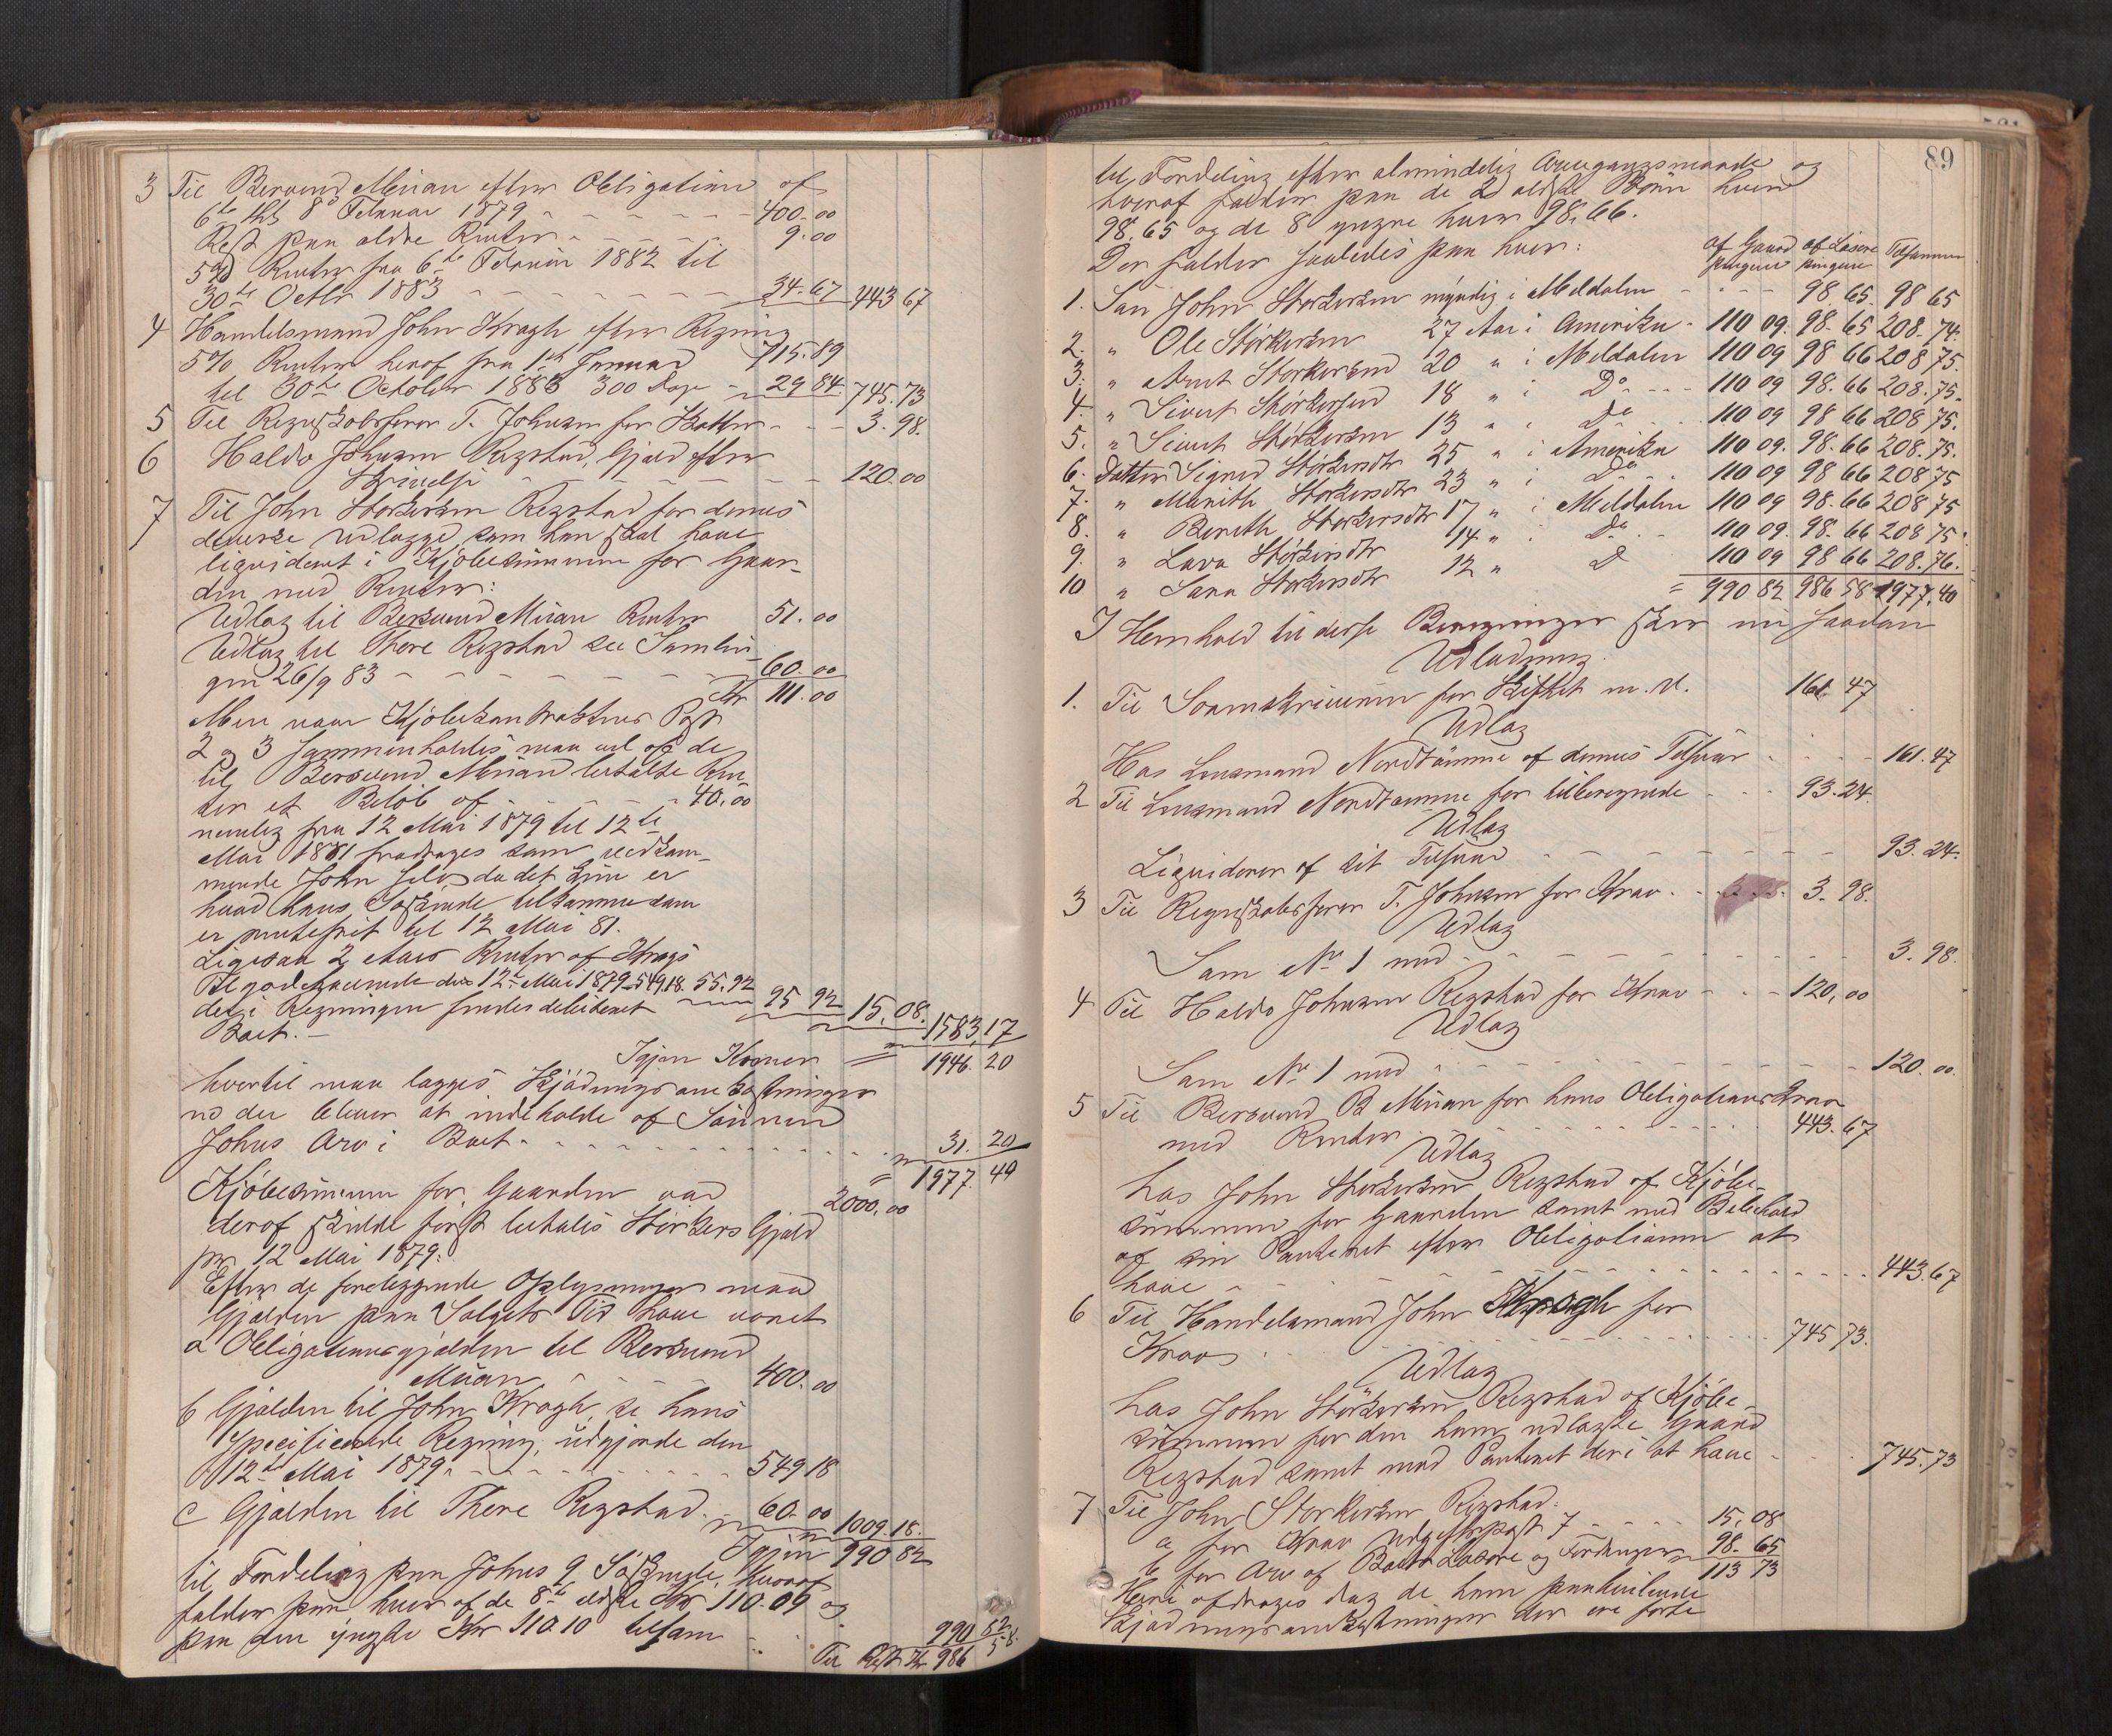 3 Til Beraund Meiran efter Obligation af
6te tht 8de Februar 1879 400.00
Rest paa aldre Renter 9.00
5% Renter fra 6te Februar 1882 til
30te Octbr 1883 34.67 443 67
4 Handelsmand John Kragh efter Regning 715.89
5% Renter heraf fra 1ste Januar
til 30te October 1883 300 Dage 29 84. 745.73
5 Til Regnskabsfører T. Johnsen for Skatter 3.98.
6 Haldo Johnsen Rigstad, Gjæld efter
Skrivelse 120.00
7 Til John Størkersen Rigstad for dennes
diverse Udlægge som han skal have
liqvideret i Kjøbesummen for Gaar-
den med Renter:
Udlæg til Beraund Meiran Renter 51.00
Udlæg til Thore Rigstad se Samlin
gen 26/9 83 60.00
Kr 111.00
Men naar Kjøbekontraktens Post
2 og 3 sammenholdes maa vel af de
til Beraund Meiran betalte Ren-
ter et Beløb af 40.00
nemlig fra 12 Mai 1879 til 12te
Mai 1881 fradrages som vedkom-
mende John selv, da det kun er
hvad hans Søskende tilkomme som
er rentefrit til 12 Mai 81.
Ligesaa 2 Aars Renter af Kraghs
Tilgodehavende den 12te Mai 1879 549.18. 55.92
der i Regningen findes debiteret 95 92 15.08.
Boet. 1583,17
Igjen Kroner 1946.20
hvortil maa lægges Skjødningsomkostninger
no der bliver at indeholde af Sønnen
Johns Arv i Boet 31.20
1977.40
Kjøbesummen for Gaarden var 2000.00
deraf skulde først betales Størkers Gjæld
pr 12 Mai 1879.
Efter de foreliggende Oplysninger maa
Gjælden paa Salgets Tid have været
a Obligationsgjælden til Beraund
Meiran 400.00
b Gjælden til John Kragh, se hans
specificerede Regning, udgjorde den
12te Mai 1879 549 18
c Gjælden til Thore Rigstad 60.00 1009.18.
Igjen 990 82
til Fordeling paa Johns 9 Søskende, hvoraf
falder paa hver af de 8te ældste Kr 110.09 og
paa den yngste Kr 110.10 tilsam 990 82
Til Rest Kr 986 58.
89
til Fordeling efter almindelig Arvegangsmaade og
hvoraf falder paa de 2 ældste Børn hver
98.65 og de 8 yngre hver 98.66.
Der falder saaledes paa hver:
af Gaard pengene af Løsøre pengene Tilsammen
1. Søn John Størkersen myndig i Meldalen 98.65. 98 65
2. " Ole Størkersen 27 Aar i Amerika 110 09. 98.65 208.74.
3. " Arnt Størkersen 20 " i Meldalen 110 09 98 66 208.75.
4. " Sivert Størkersen 18 " i Do 110 09 98.66 208.75.
5. " Sivert Størkersen 13 " i Do 110 09 98 66 208 75.
6. Datter Sigrid Størkersdtr 25 " i Amerika 110 09. 98.66 208.75.
7. " Marith Størkersdtr 23 " i Do 110 09 98 66 208 75
8. " Berith Størkersdtr 17 " i Meldalen 110 09 98.66 208 75
9. " Lava Størkersdtr 14 " i Do 110 09. 98.66 208 75.
10 " Sara Størkersdtr 12 " Do 110 09 98 66 208.76.
= 990 82 986 58 1977.40
I Henhold til disse Beregninger sker nu saadan
Udlodning.
1. Til Sorenskriveren for Skiftet m. v. 161 47
Udlæg
Hos Lensmand Nordtømme af dennes Tilsvar 161.47
2 Til Lensmand Nordtømme for tilberegnede 93.24.
Udlæg
Liqviderer af sit Tilsvar 93.24.
3 Til Regnskabsfører T. Johnsen for Krav 3.98.
Udlæg
Som No 1 med 3.98.
4 Til Haldo Johnsen Rigstad for Krav 120,00
Udlæg
Som No 1 med 120.00.
5 Til Beraund B Meiran for hans Obligations Krav
med Renter 443.67
Udlæg
hos John Størkersen Rigstad af Kjøbe-
summen for Gaarden samt med Beibehold
af sin Panteret efter Obligationen at
have 443.67
6 Til Handelsmand John Kragh for
Krav 745 73.
Udlæg
hos John Størkersen Rigstad af Kjøbe-
summen for den ham udlagte Gaard
Rigstad samt med Panteret deri at have 745.73
7 Til John Størkersen Rigstad:
a, for Krav Udgiftspost 7 15.08
b for Arv af Boets Løsøre og Fordringer 98.65
113 73
Heri afdrages dog de ham paahvilende
Skjødningsomkostninger der ere førte